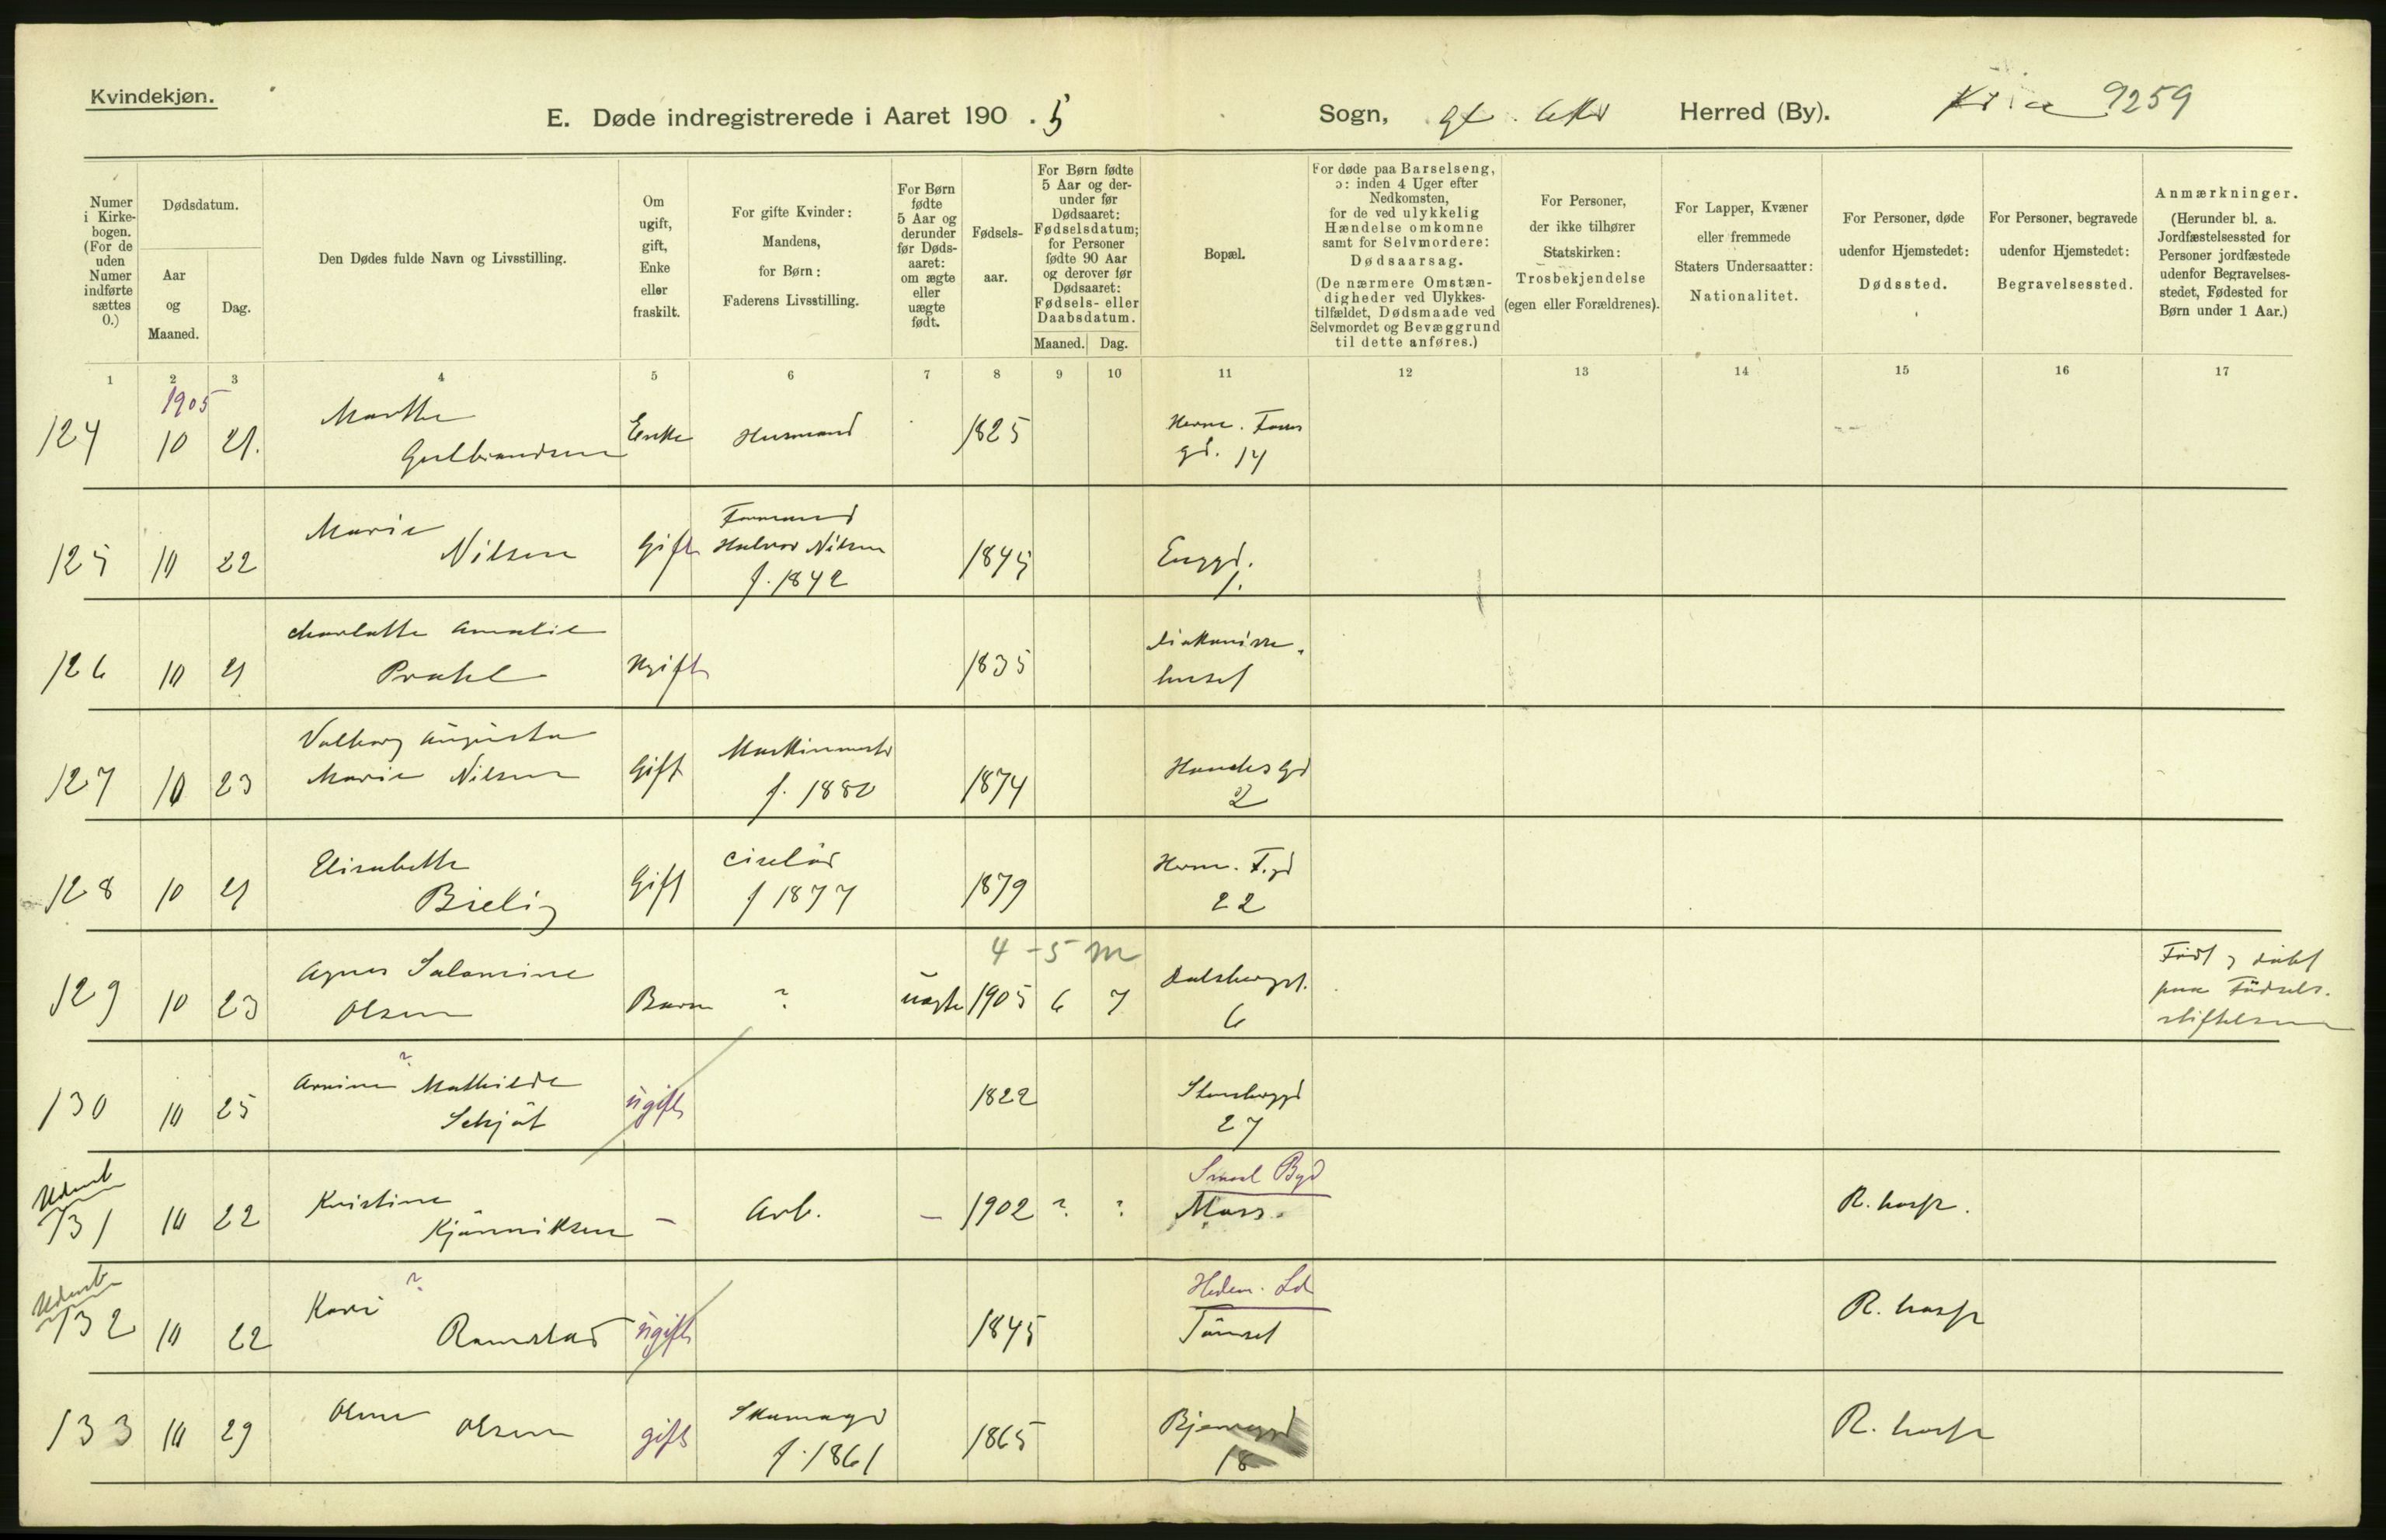 Kvindekjøn.
E. Døde indregistrerede i Aaret 190 . 5 Sogn, gl. Akr Herred (By). Kr.ia 9259
Numer i Kirkebogen. (For de uden Numer indførte sættes 0.)
Dødsdatum.
Aar og Maaned.
Dag.
Den Dødes fulde Navn og Livsstilling.
Om ugift, gift, Enke eller fraskilt.
For gifte Kvinder: Mandens, for Børn: Faderens Livsstilling.
For Børn fødte 5 Aar og derunder før Dødsaaret: om ægte eller uægte født.
Fødselsaar.
For Børn fødte 5 Aar og derunder før Dødsaaret: Fødselsdatum; for Personer fødte 90 Aar og derover før Dødsaaret: Fødsels- eller Daabsdatum.
Maaned. Dag.
Bopæl.
For døde paa Barselseng, ɔ: inden 4 Uger efter Nedkomsten, for de ved ulykkelig Hændelse omkomne samt for Selvmordere: Dødsaarsag.
(De nærmere Omstændigheder ved Ulykkestilfældet, Dødsmaade ved Selvmordet og Bevæggrund til dette anføres.)
For Personer, der ikke tilhører Statskirken: Trosbekjendelse (egen eller Forældrenes).
For Lapper, Kvæner eller fremmede Staters Undersaatter: Nationalitet.
For Personer, døde udenfor Hjemstedet: Dødssted.
For Personer, begravede udenfor Hjemstedet: Begravelsessted.
Anmærkninger.
(Herunder bl. a. Jordfæstelsessted for Personer jordfæstede udenfor Begravelsesstedet, Fødested for Børn under 1 Aar.)
1 2 3 4 5 6 7 8 9 10 11 12 13 14 15 16 17
1905
124 10 21. Marthe Gulbrandsen Enke Husmand 1825 Herm. Foss gd. 14
125 10 22 Marie Nilsen Gift Formand Halvor Nilsen f. 1842 1845 Enggd. 1.
126 10 21 Charlotte Amalie Prahl Ugift 1835 Diakonissehuset
127 10 23 Valborg Augusta Marie Nilsen Gift Maskinmestr f. 1880 1874 2
128 10 21 Elisabeth Bielig Gift Ciselör f 1877 1879 Herm. F.gd 22
4-5 m
129 10 23 Agnes Salomine Olsen Barn ? uægte 1905 6 7 Dalsbergst. 6 Födt og döbt paa Födselsstiftelsen
130 10 25 ? Mathilde Schjöt ugift 1822 Stensberggd 27
Udenb.
131 10 22 Kristine Kjönniksen - Arb. - 1902 ? ? Smaal Byd Moss. R. hosp.
Udenb.
132 10 22 Kari ? Ramstad ugift 1845 Hedm. Ld Tönset R. hosp
133 10 29 Olsen gift Skomagr f. 1861 1865 18 R. hosp